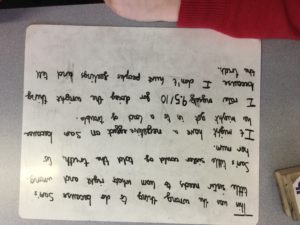 This was the wrong thing to do because Sam's
little sister needs to learn whats right and wrong
Sam's little sister would of told the truth to
her mum.
It might have a negative affect on Sam because
he might get is in a lot of trouble
I rate myself 9.5/10 for doing the wright thing
because I don't hurt people feelings and tell
the truth.